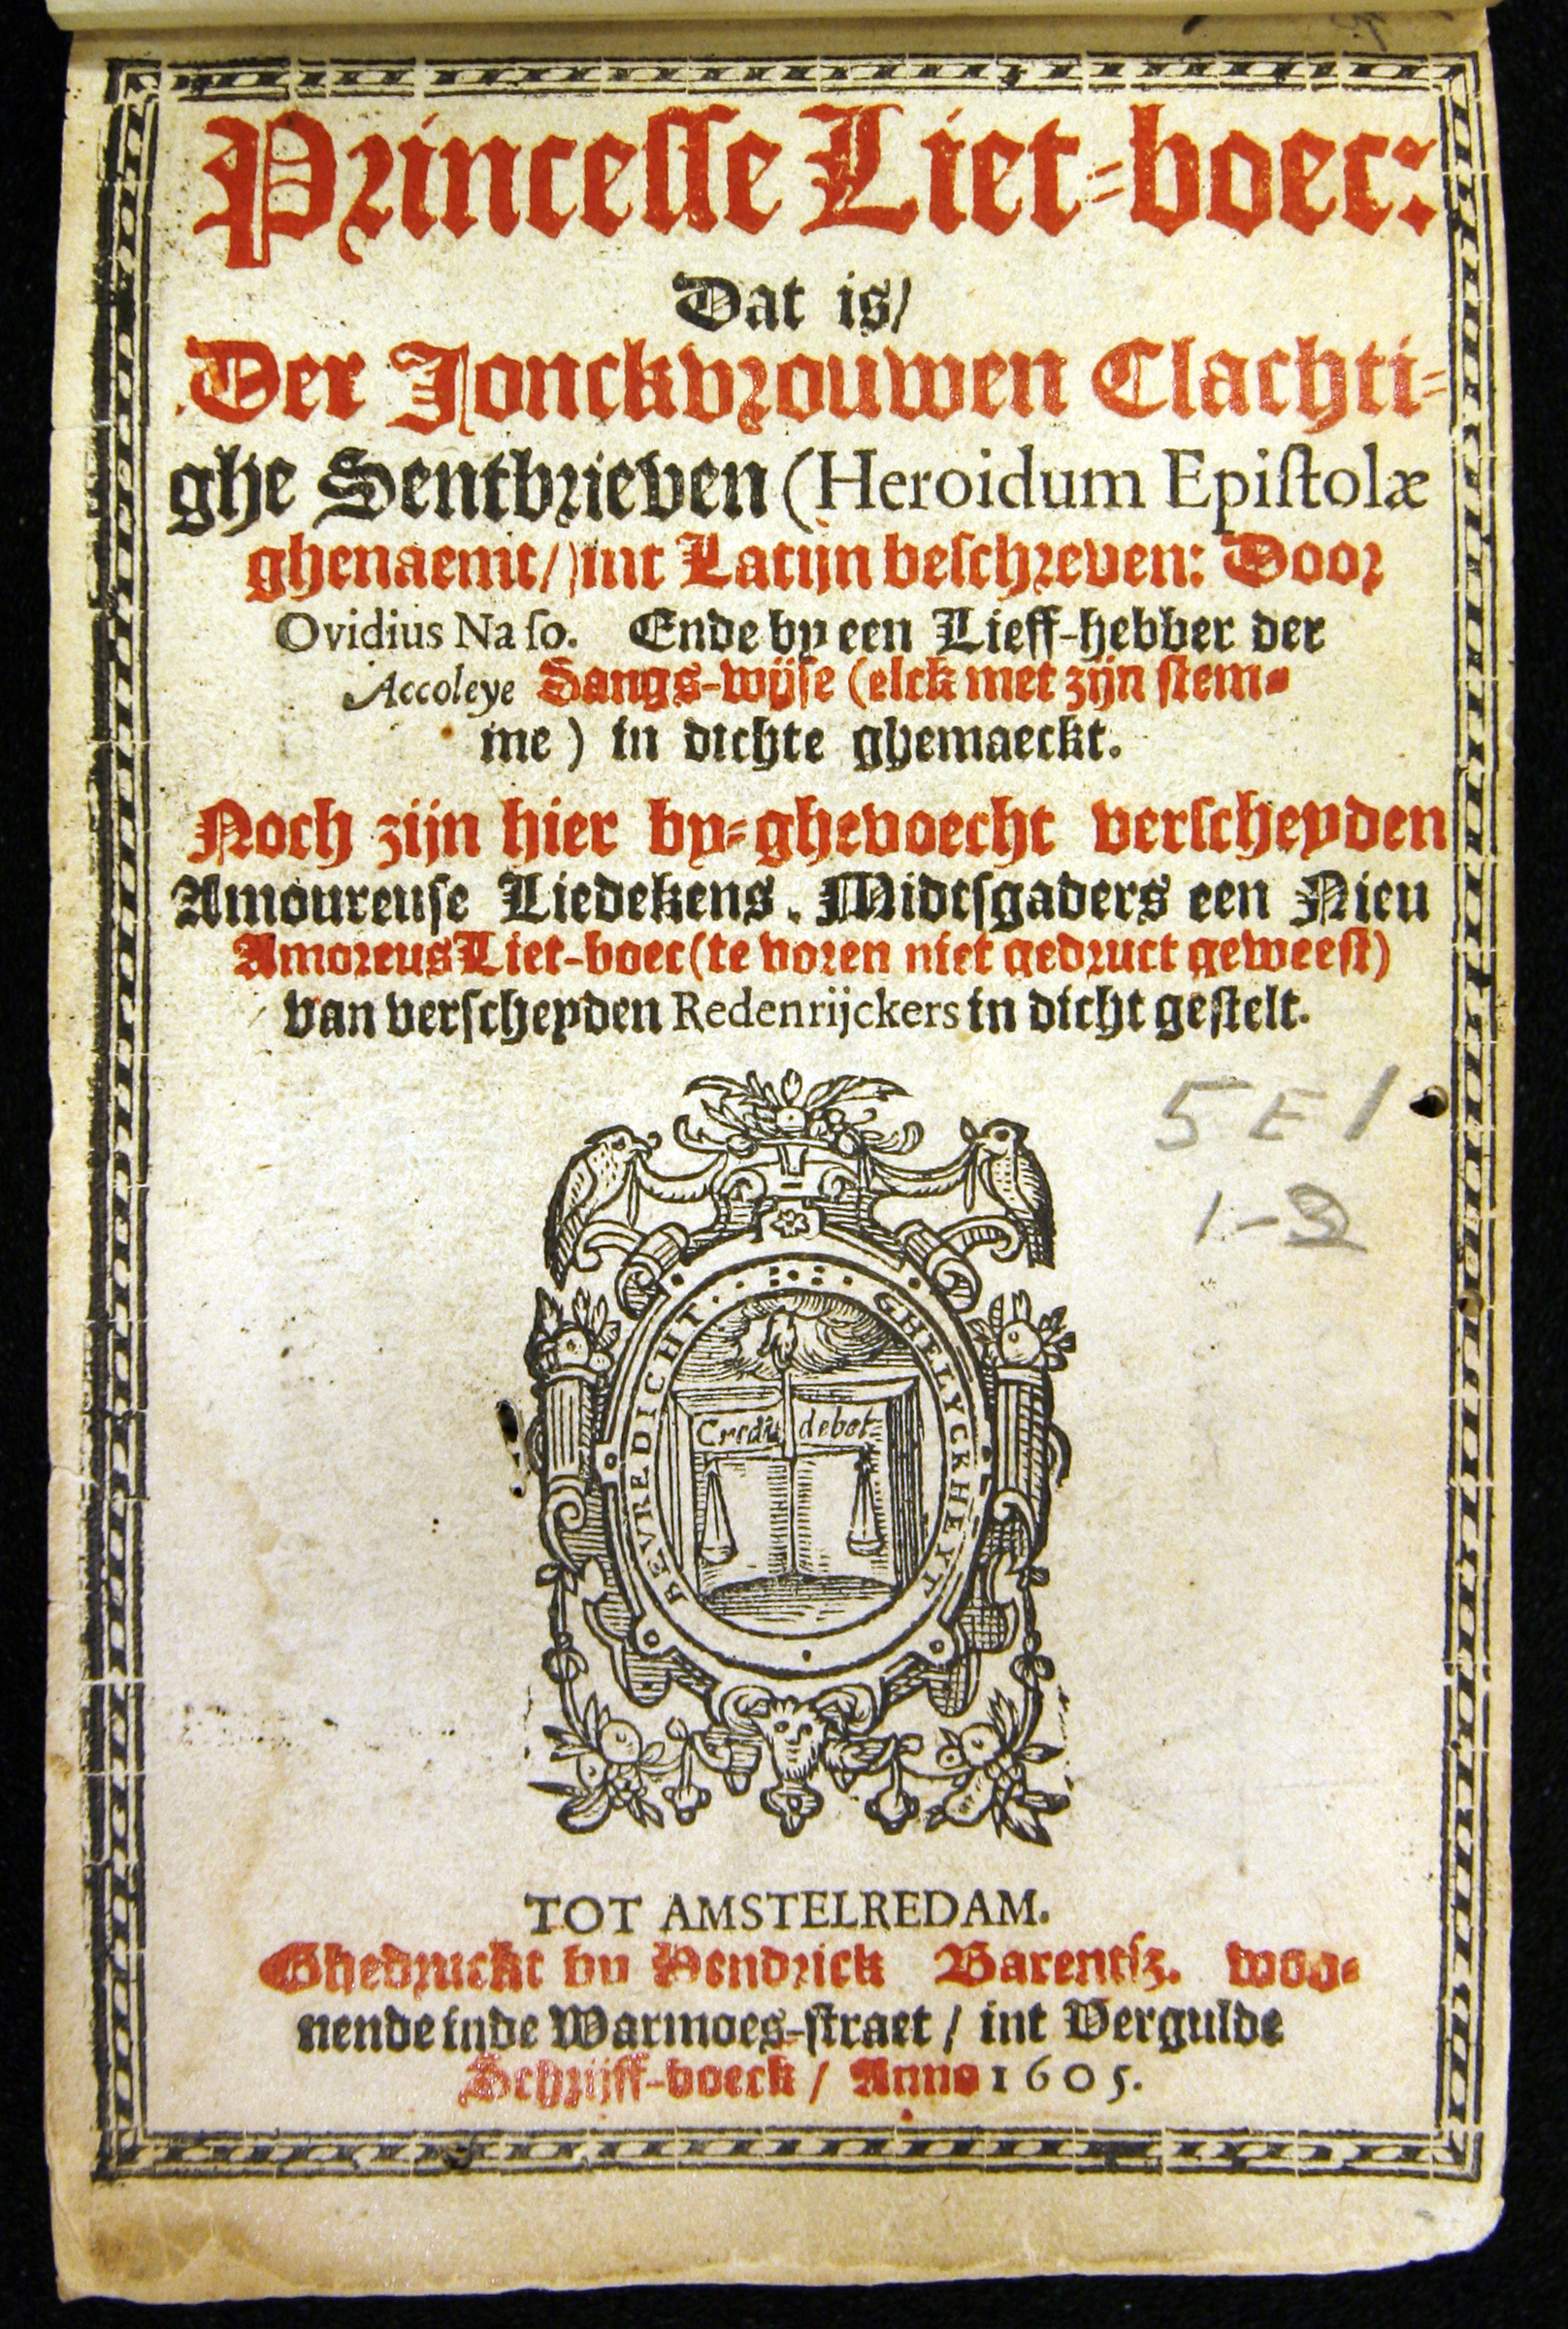 Princesse Liet-boec:
Dat is/
Der Jonckvrouwen Clachti-
ghe Sentbrieven (Heroidum Epistolæ
ghenaemt/) int Latijn beschreven: Door
Ovidius Naso. Ende by een Lieff-hebber der
Accoleye Sangs-wijse (elck met zijn stem-
me) in dichte ghemaeckt.
Noch zijn hier by-ghevoecht verscheyden
Amoureuse Liedekens. Midtsgaders een Nieu
Amoreus Liet-boec (te voren niet gedruct geweest)
van verscheyden Redenrijckers in dicht gestelt.
5 E 1
1-2
BEVREDICHT. GHELYCKHEYT
Credit debet
TOT AMSTELREDAM.
Ghedruckt by Hendrick Barentsz. woo-
nende inde Warmoes-straet / int Vergulde
Schrijff-boeck / Anno 1605.